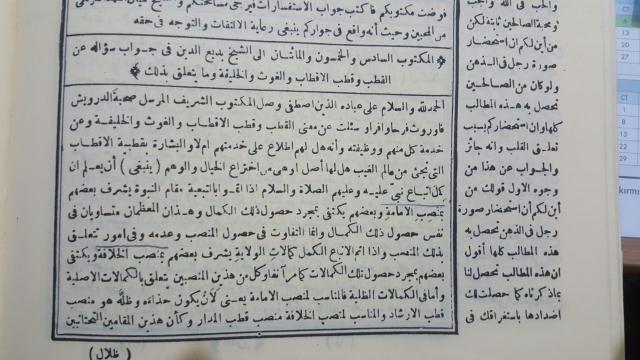 فوضت مكتوبكم فاكتب جواب الاستفسارات فيرجى مسامحتكم
من المحبين وحيث أنه واقع فى جواركم ينبغى رعاية الالتفات والتوجه فى حقه
﴿ المكتوب السادس والخمسون والمائتان الى الشيخ بديع الدين فى جواب سؤاله عن
القطب وقطب الاقطاب والغوث والخليفة وما يتعلق بذلك ﴾
الحمد لله والسلام على عباده الذين اصطفى وصل المكتوب الشريف المرسل صحبة الدرويش
فاورث فرحا وافرا وسئلت عن معنى القطب وقطب الاقطاب والغوث والخليفة وعن
خدمة كل منهم ووظيفته وأنه هل لهم اطلاع على خدمتهم ام لا والبشارة بقطبية الاقطاب
التى تجئ من عالم الغيب هل لها أصل او هى من اختراع الخيال والوهم (ينبغى) أن يعلم ان
كل اتباع نبى عليه وعليهم الصلاة والسلام اذا اتموا بالتبعية مقام النبوة يشرف بعضهم
بمنصب الامامة وبعضهم يكتفى بمجرد حصول ذلك الكمال وهذان المعظمان متساويان فى
نفس حصول ذلك الكمال وانما التفاوت فى حصول المنصب وعدمه وفى امور تتعلق
بذلك المنصب واذا اتم الاتباع الكمل كمالات الولاية يشرف بعضهم بمنصب الخلافة ويكتفى
بعضهم بمجرد حصول تلك الكمالات كما مر آنفا وكل من هذين المنصبين يتعلق بالكمالات الاصلية
وأما فى الكمالات الظلية فالمناسب لمنصب الامامة يعنى لأن يكون حذاءه وظله هو منصب
قطب الارشاد والمناسب لمنصب الخلافة منصب قطب المدار وكأن هذين المقامين التحتانيين
(ظلال)
والحب فى الله والجب
ومحبة الصالحين ثابتة لكن
من أين لكم ان استحضار
صورة رجل فى الذهن
ولو كان من الصالحين
تحصل به هذه المطالب
كلها وان استحضاركم بسبب
تعلق القلب وانه جائز
والجواب عن هذا من
وجوه الاول قولك من
أين لكم أن استحضار صورة
رجل فى الذهن تحصل به
هذه المطالب كلها أقول
ان هذه المطالب تحصل لنا
بما ذكرناه كما حصلت لك
اضدادها باستغراقك فى